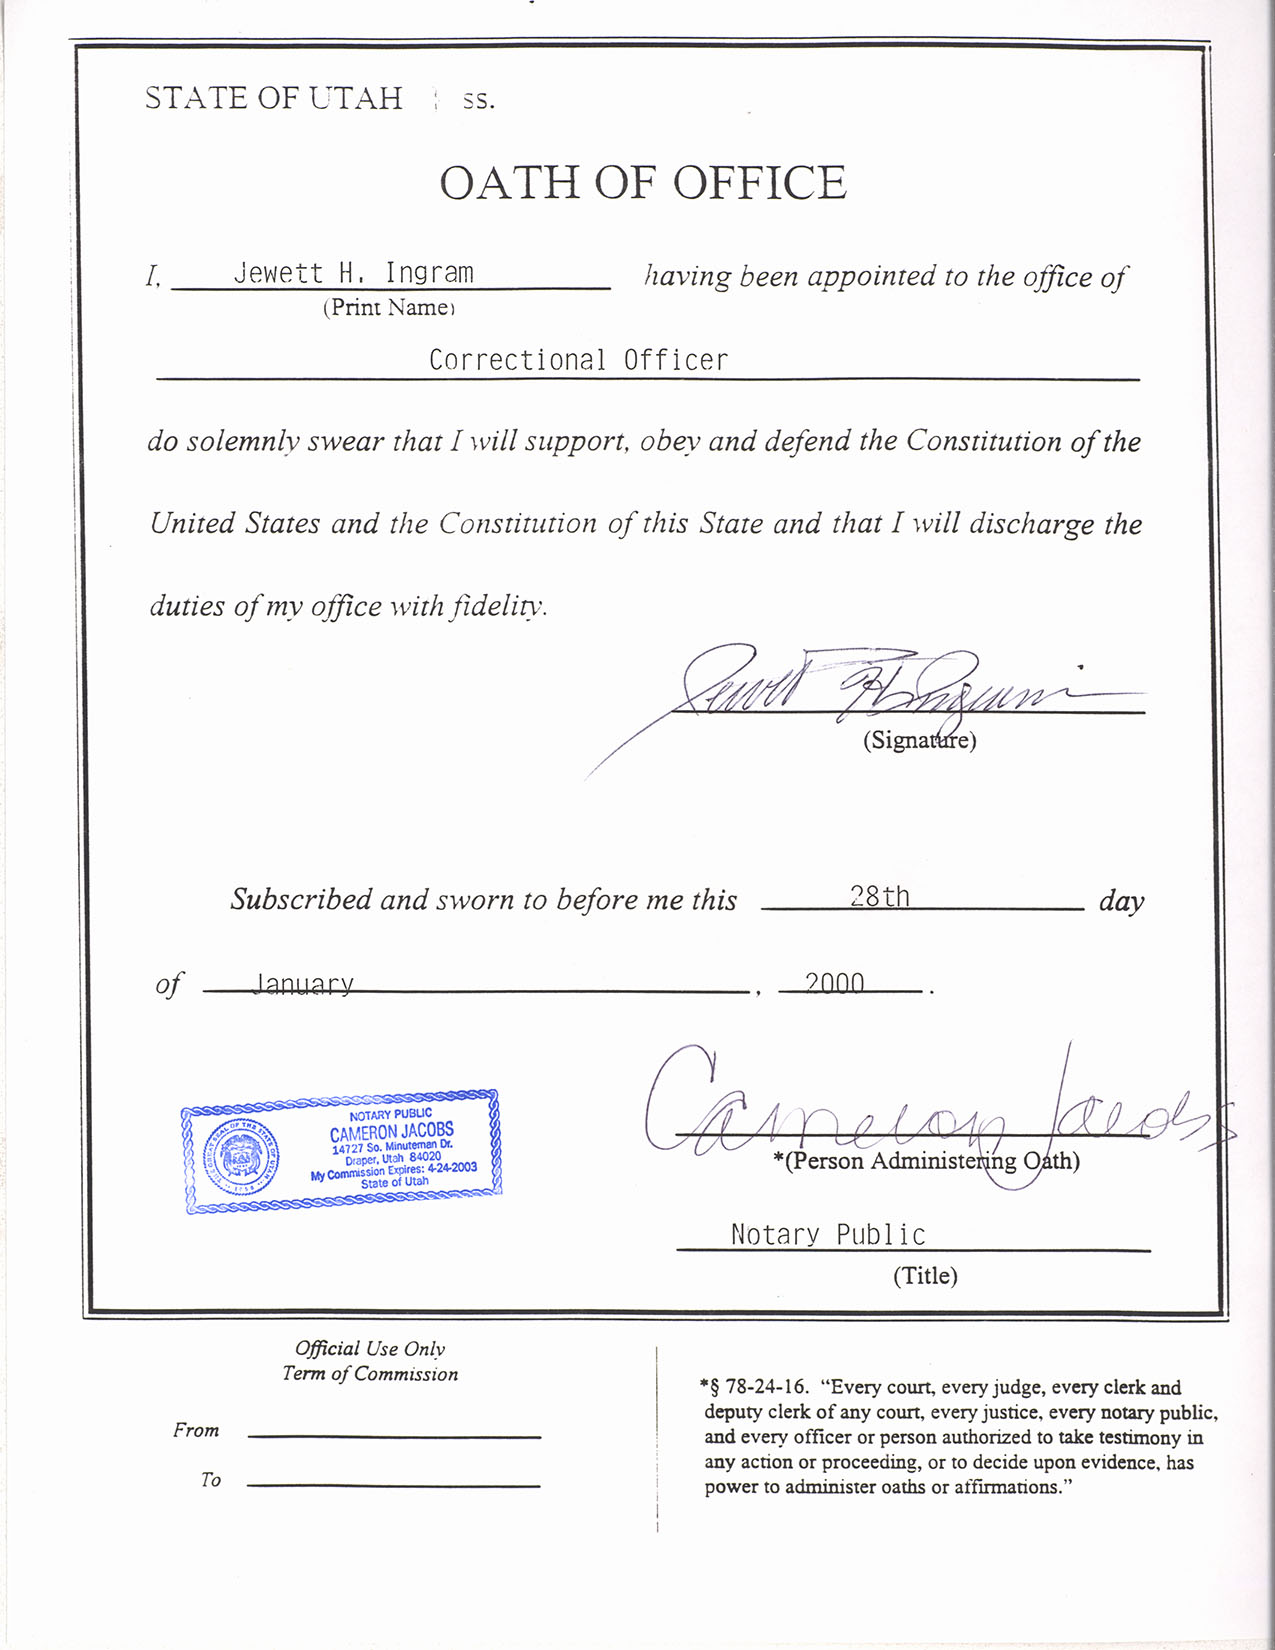 STATE OF UTAH : ss.
OATH OF OFFICE
I, Jewett H. Ingram having been appointed to the office of
(Print Name)
Correctional Officer
do solemnly swear that I will support, obey and defend the Constitution of the
United States and the Constitution of this State and that I will discharge the
duties of my office with fidelity.
Jewett H Ingram
(Signature)
Subscribed and sworn to before me this 28th day
of January, 2000.
Cameron Jacobs
*(Person Administering Oath)
NOTARY PUBLIC
CAMERON JACOBS
14727 So. Minuteman Dr.
Draper, Utah 84020
My Commission Expires: 4-24-2003
State of Utah
THE GREAT SEAL OF THE STATE OF UTAH
Notary Public
(Title)
Official Use Only
Term of Commission
From
To
*§ 78-24-16. “Every court, every judge, every clerk and
deputy clerk of any court, every justice, every notary public,
and every officer or person authorized to take testimony in
any action or proceeding, or to decide upon evidence, has
power to administer oaths or affirmations.”